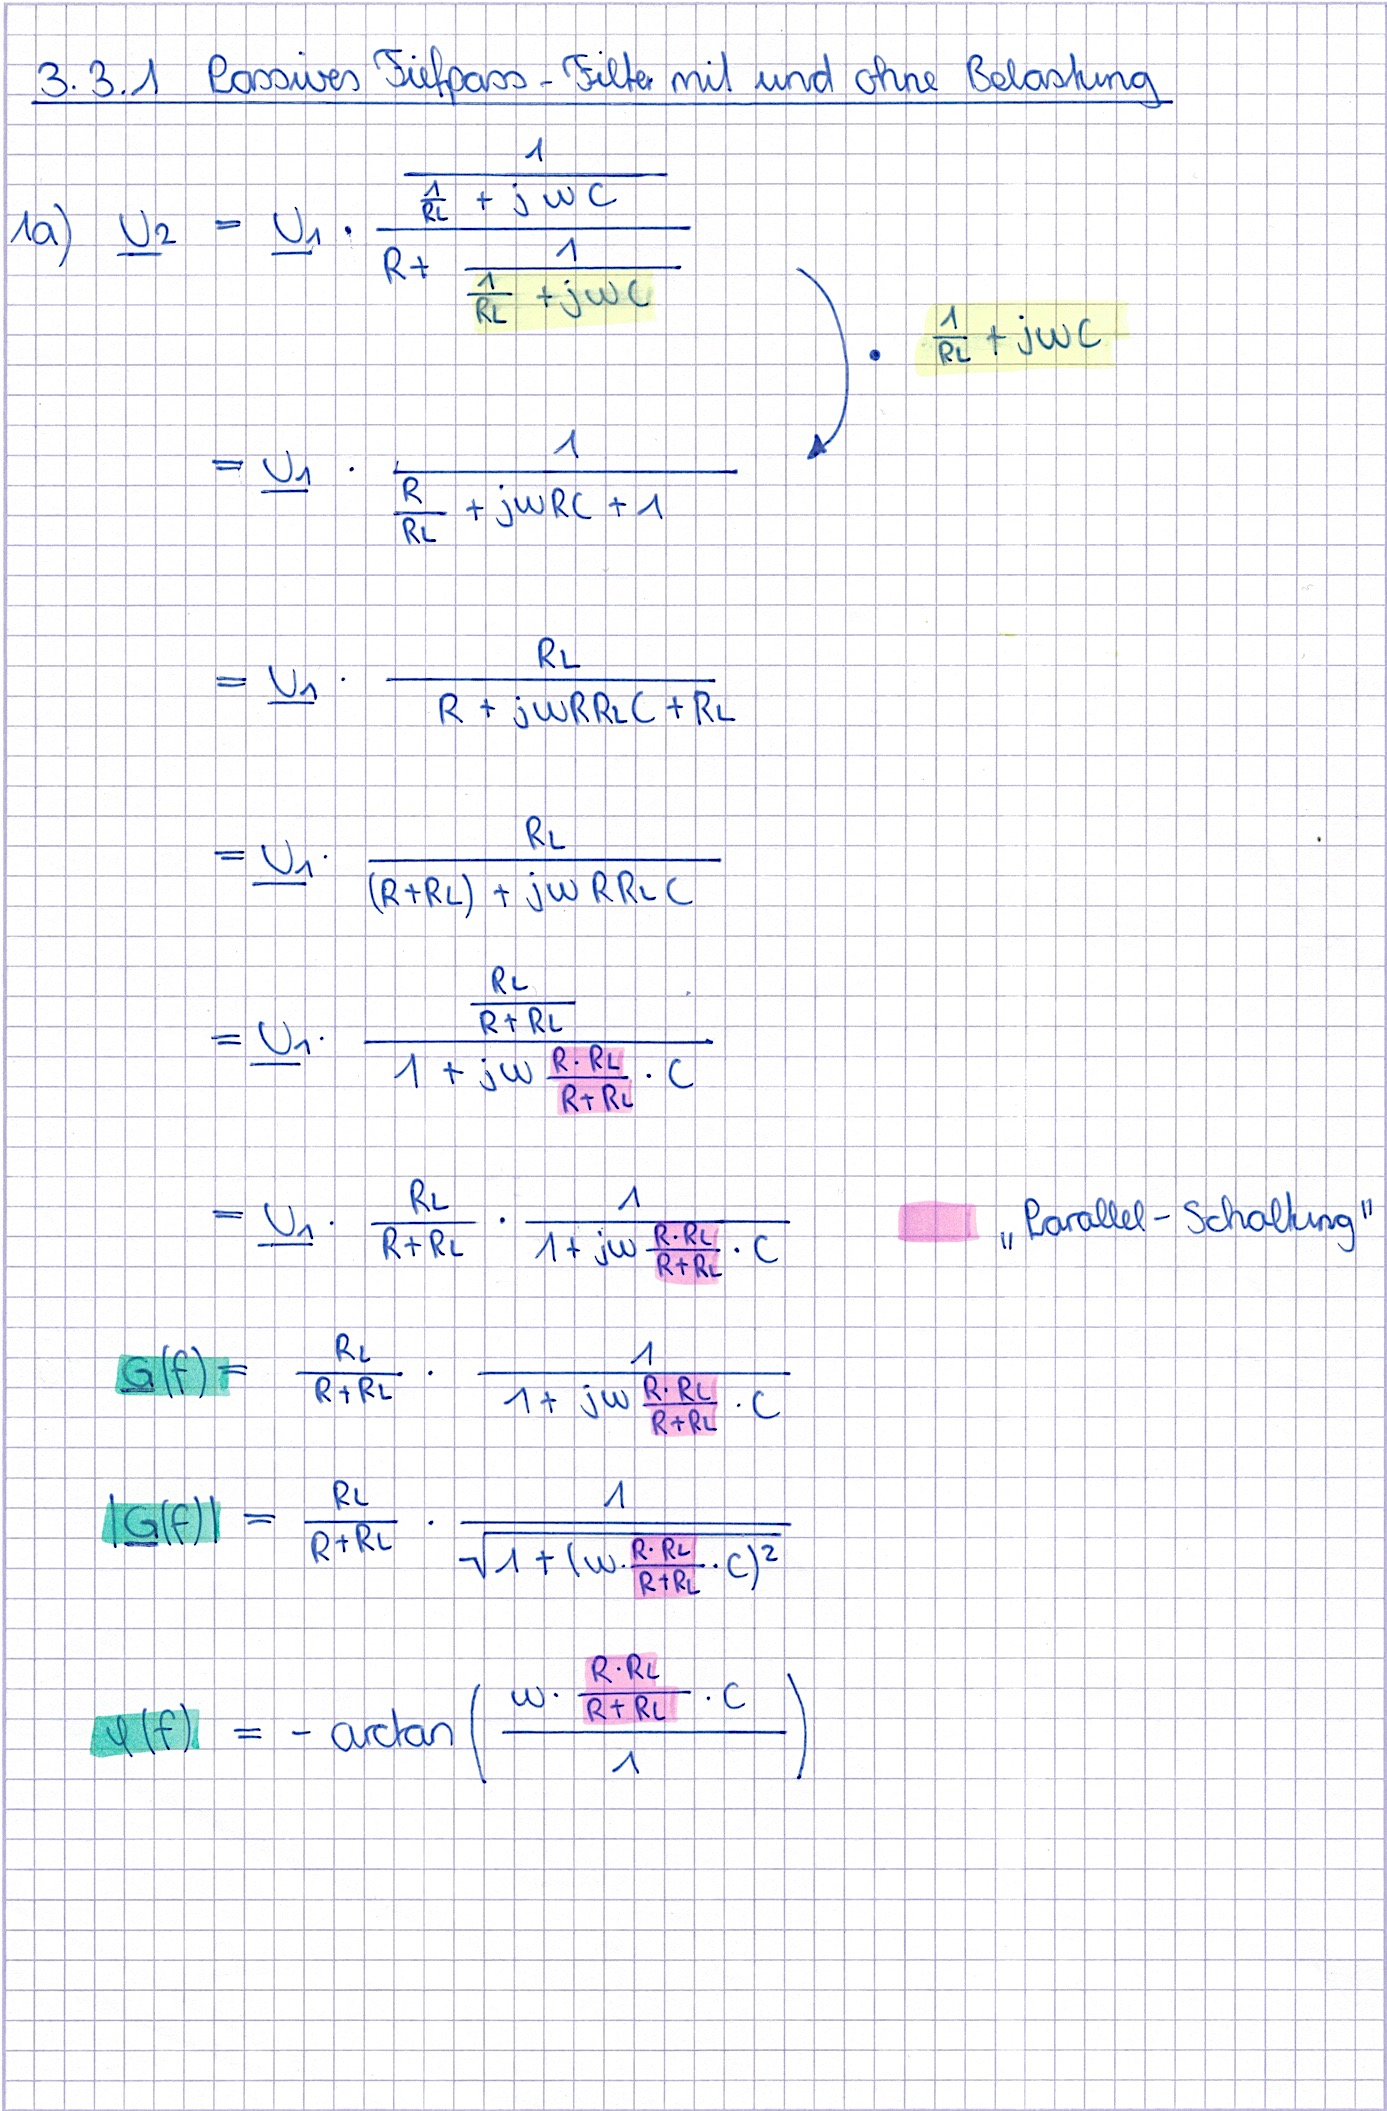 3.3.1 Passives Tiefpass-Filter mit und ohne Belastung
1a) U₂ = U₁ · (1/(1/RL + jωC)) / (R + 1/(1/RL + jωC))
· 1/RL + jωC
= U₁ · 1/(R/RL + jωRC + 1)
= U₁ · RL/(R + jωRRLC + RL)
= U₁ · RL/((R+RL) + jωRRLC)
= U₁ · (RL/(R+RL))/(1 + jω (R·RL)/(R+RL) · C)
= U₁ · RL/(R+RL) · 1/(1 + jω (R·RL)/(R+RL) · C) „Parallel-Schaltung"
G(f) = RL/(R+RL) · 1/(1 + jω (R·RL)/(R+RL) · C)
|G(f)| = RL/(R+RL) · 1/√(1 + (ω · (R·RL)/(R+RL) · C)²)
φ(f) = - arctan((ω · (R·RL)/(R+RL) · C)/1)